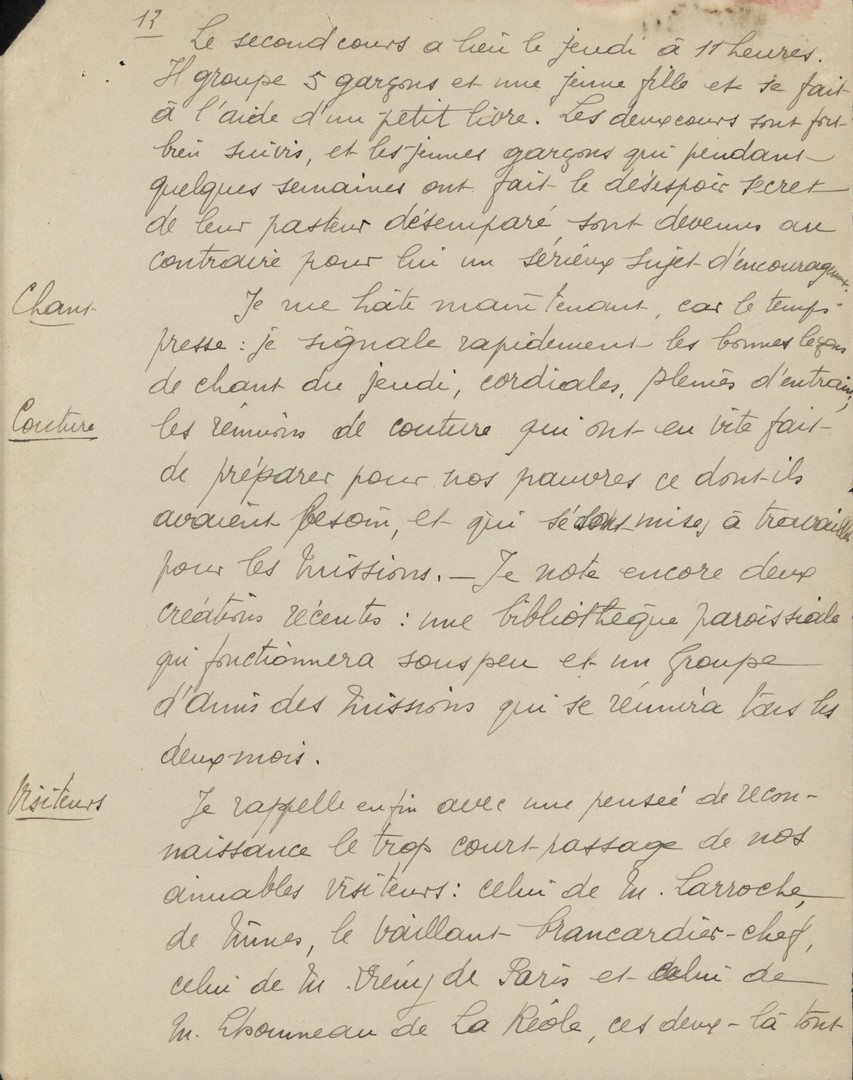 12
Le second cours a lieu le jeudi à 11 heures.
Il groupe 5 garçons et une jeune fille et se fait
à l'aide d'un petit livre. Les deux cours sont fort
bien suivis, et les jeunes garçons qui pendant
quelques semaines ont fait le désespoir secret
de leur pasteur désemparé, sont devenus au
contraire pour lui un sérieux sujet d'encouragement.
Chant
Je me hâte maintenant, car le temps
presse : je signale rapidement les bonnes leçons
de chant du jeudi, cordiales, pleines d'entrain,
Couture
les réunions de couture qui ont eu vite fait
de préparer pour nos pauvres ce dont ils
avaient besoin, et qui se sont mises à travailler
pour les Missions. — Je note encore deux
créations récentes : une bibliothèque paroissiale
qui fonctionnera sous peu et un Groupe
d'Amis des Missions qui se réunira tous les
deux mois.
Visiteurs
Je rappelle enfin avec une pensée de recon-
naissance le trop court passage de nos
aimables visiteurs : celui de M. Larroche,
de Nîmes, le vaillant brancardier-chef,
celui de M. de Paris et celui de
M. de La Réole, ces deux-là tont